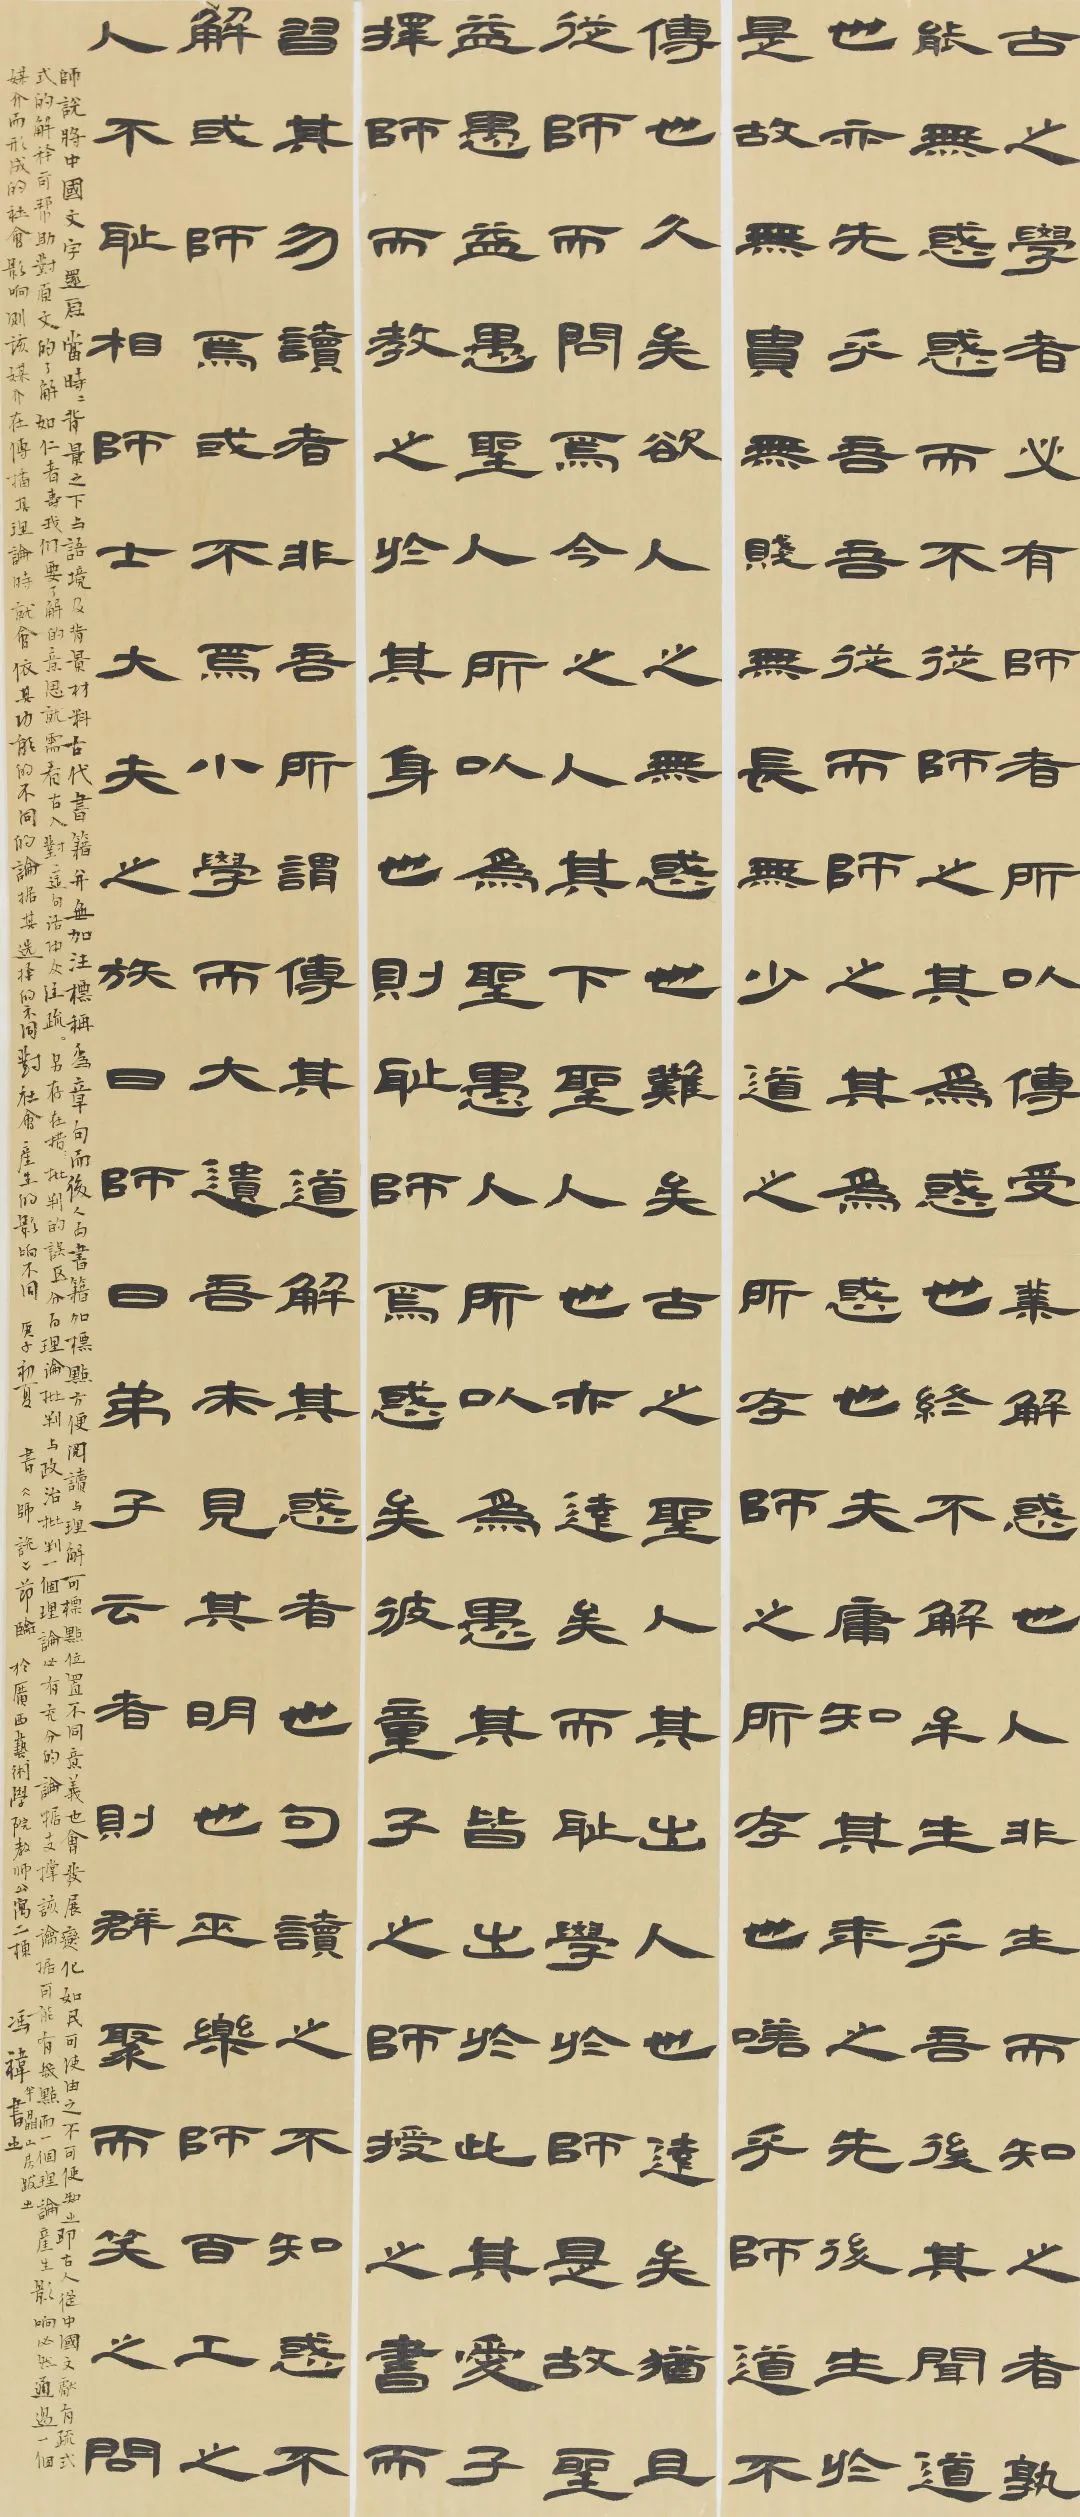 古之學者必有師者所以傳受業解惑也人非生而知之者孰
能無惑惑而不從師之其為惑也終不解牟生乎吾後其聞道
也亦先乎吾吾從而師之其為惑也夫庸知其年之先後生於
是故無貴無賤無長無少道之所存師之所存也嗟乎師道不
傳也久矣欲人之無惑也難矣古之聖人其出人也達矣猶且
從師而問焉今之人其下聖人也亦達矣而耻學於師是故聖
益愚益愚聖人所以為聖愚人所以為愚其皆出於此其愛子
擇師而教之於其身也則耻師焉惑矣彼童子之師授之書而
習其勿讀者非吾所謂傳其道解其惑者也句讀之不知惑不
解或師焉或不焉小學而大遺吾未見其明也巫樂師百工之
人不耻相師士大夫之族曰師曰弟子云者則群聚而笑之問
師說將中國文字還當時之背景之下与語境及背景材料古代書籍并無加注標稱為章句而後人為書籍加標點方便閱讀与理解可標點位置不同意義也會發展變化如民可使由之不可使知之即古人從中國文獻有疏式
式的解释可帮助對原文的了解如仁者壽我们要了解的意思就需看古人對這句話注疏。另存在批判的誤区分为理論批判与政治批判一個理論必有充分的論据支撐該論据可能有幾點而一個理論產生影响必然通過一個
媒介而形成的社會影响则该媒介在傳播其理論時就會依其功能的不同的論据其选择的不同對社會產生的影响不同 庚子初夏 書《師說》節臨 於廣西藝術學院教师公寓二棟 冯禕書